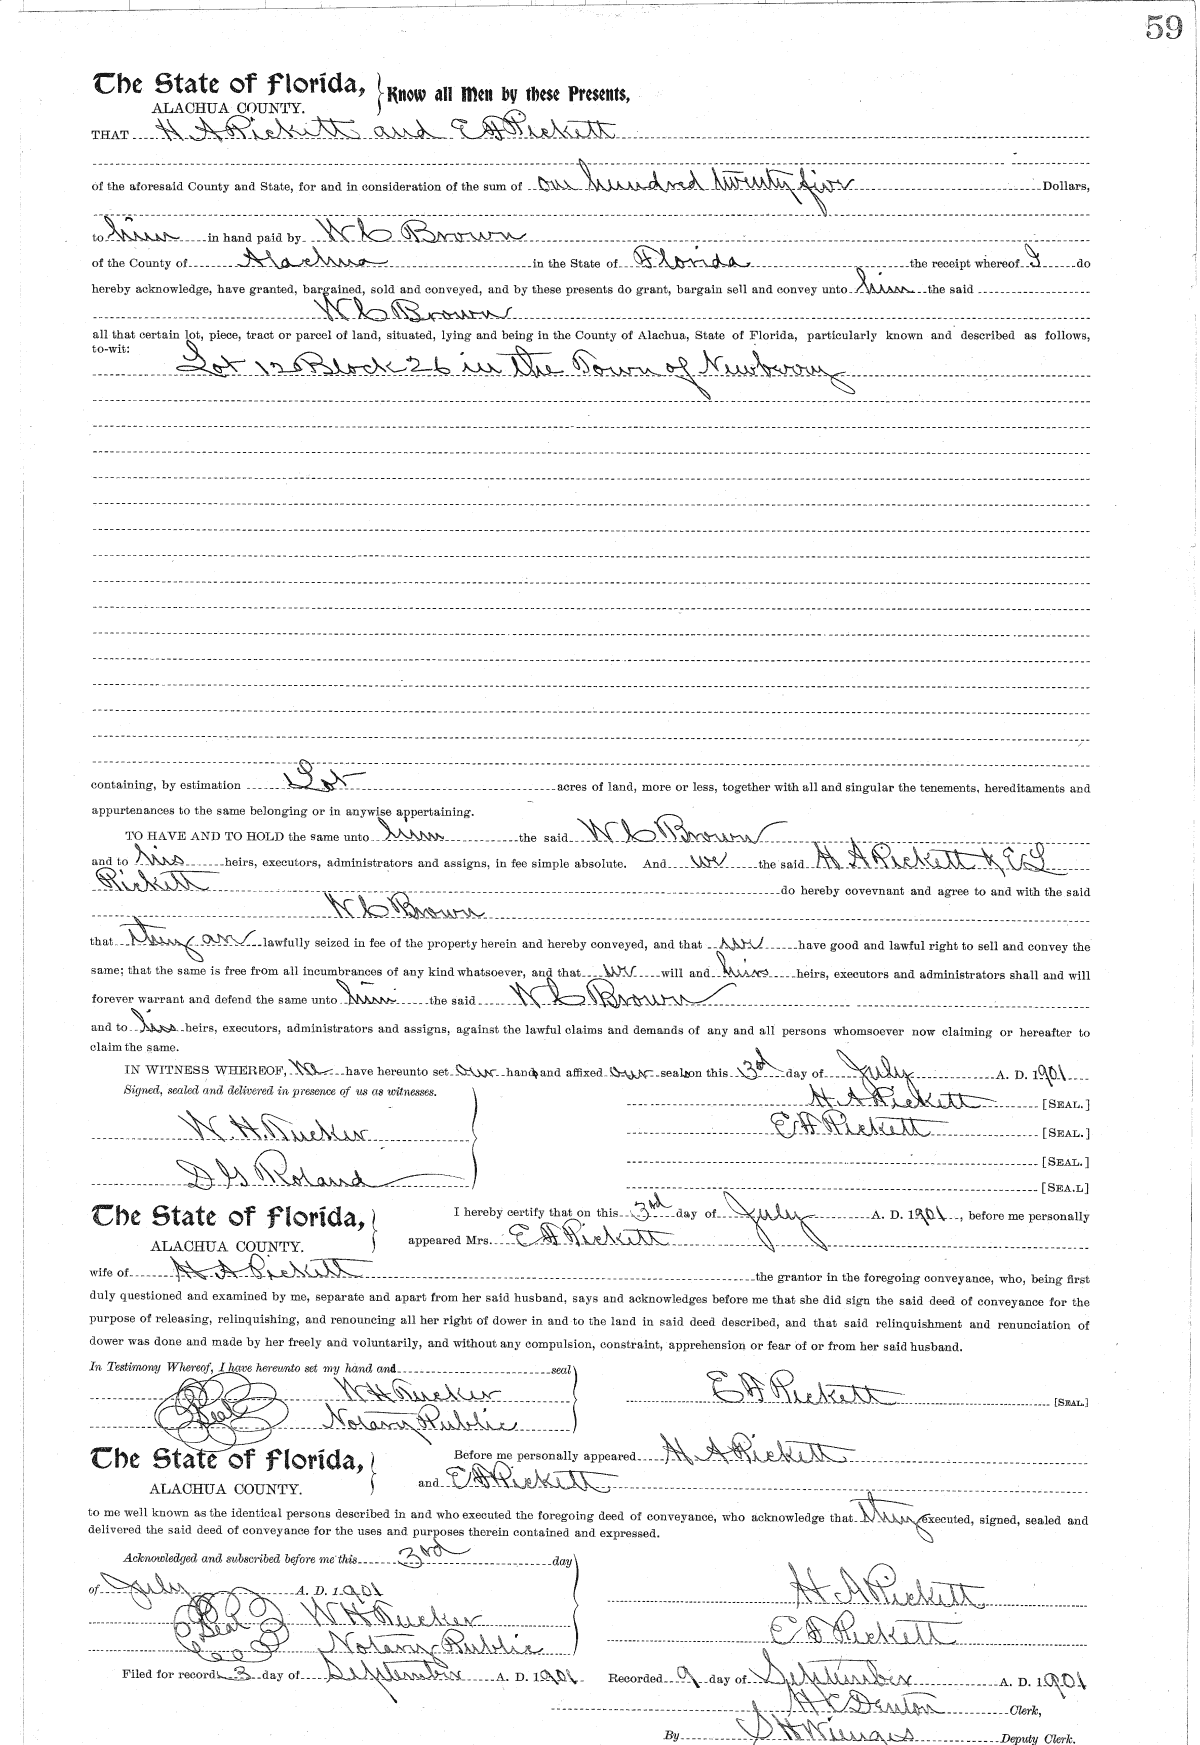 59
The State of Florida, Know all Men by these Presents,
ALACHUA COUNTY.
THAT H A Pickett and E F Pickett
of the aforesaid County and State, for and in consideration of the sum of one hundred twenty five Dollars,
to him in hand paid by W C Brown
of the County of Alachua in the State of Florida the receipt whereof I do
hereby acknowledge, have granted, bargained, sold and conveyed, and by these presents do grant, bargain sell and convey unto him the said
W C Brown
all that certain lot, piece, tract or parcel of land, situated, lying and being in the County of Alachua, State of Florida, particularly known and described as follows,
to-wit:
Lot 12 Block 26 in the Town of Newberry
containing, by estimation Lot acres of land, more or less, together with all and singular the tenements, hereditaments and
appurtenances to the same belonging or in anywise appertaining.
TO HAVE AND TO HOLD the same unto him the said W C Brown
and to his heirs, executors, administrators and assigns, in fee simple absolute. And we the said H A Pickett & E L
Pickett do hereby covevnant and agree to and with the said
W C Brown
that they are lawfully seized in fee of the property herein and hereby conveyed, and that we have good and lawful right to sell and convey the
same; that the same is free from all incumbrances of any kind whatsoever, and that we will and heirs, executors and administrators shall and will
forever warrant and defend the same unto him the said W C Brown
and to his heirs, executors, administrators and assigns, against the lawful claims and demands of any and all persons whomsoever now claiming or hereafter to
claim the same.
IN WITNESS WHEREOF, We have hereunto set our hands and affixed our seals on this 3rd day of July A. D. 1901
Signed, sealed and delivered in presence of us as witnesses.
H A Pickett [SEAL.]
W. H. Rucker E F Pickett [SEAL.]
[SEAL.]
D G Roland
[SEA.L]
The State of Florida, I hereby certify that on this 3rd day of July A. D. 1901, before me personally
ALACHUA COUNTY. appeared Mrs. E F Pickett
wife of H A Pickett the grantor in the foregoing conveyance, who, being first
duly questioned and examined by me, separate and apart from her said husband, says and acknowledges before me that she did sign the said deed of conveyance for the
purpose of releasing, relinquishing, and renouncing all her right of dower in and to the land in said deed described, and that said relinquishment and renunciation of
dower was done and made by her freely and voluntarily, and without any compulsion, constraint, apprehension or fear of or from her said husband.
In Testimony Whereof, I have hereunto set my hand and seal
W H Rucker E F Pickett [SEAL]
Seal Notary Public
The State of Florida, Before me personally appeared H A Pickett
ALACHUA COUNTY. and E F Pickett
to me well known as the identical persons described in and who executed the foregoing deed of conveyance, who acknowledge that they executed, signed, sealed and
delivered the said deed of conveyance for the uses and purposes therein contained and expressed.
Acknowledged and subscribed before me this 3rd day
of July A. D. 1901 H A Pickett
Seal W H Rucker
E F Pickett
Notary Public
Filed for record 3 day of September A. D. 1901 Recorded 9 day of September A. D. 1901
H C Denton Clerk,
By S H Wienges Deputy Clerk.